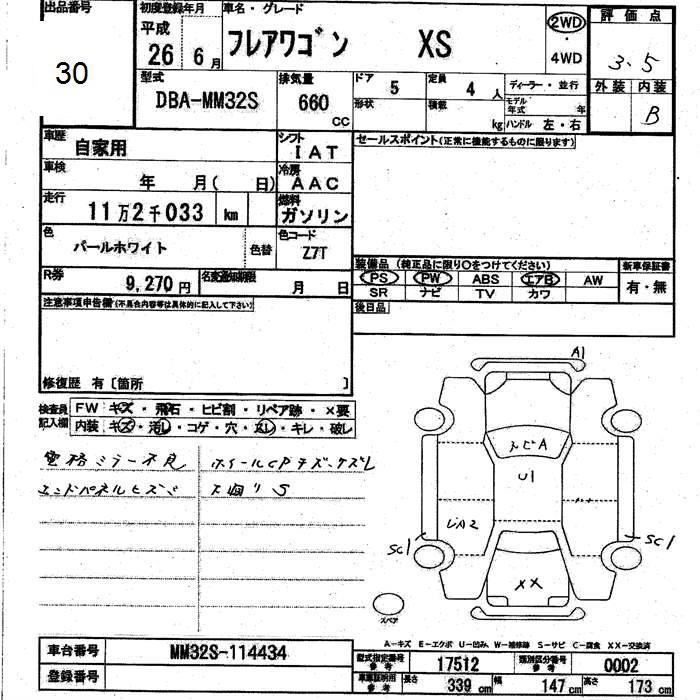 出品番号 初度登録年月 車名・グレード 評価点
30 平成 26 6月 フレアワゴン XS 2WD ・ 4WD 3.5
型式 DBA-MM32S 排気量 660 CC ドア 5 定員 4 人 ディーラー・並行 外装 内装
形状 積載 kg モデル年式 年 ハンドル 左・右 B
車歴 自家用 シフト IAT セールスポイント(正常に機能するものに限ります)
車検 年 月( 日) 冷房 AAC
走行 11万2千033 km 燃料 ガソリン
色 パールホワイト 色替 色コード Z7T
装備品 (純正品に限り○をつけてください) 新車保証書
R券 9,270円 名変通知期限 月 日 PS PW ABS エアB AW 有・無
SR ナビ TV カワ
注意事項申告欄(不具合内容等は具体的に記入して下さい) 後日品
修復歴 有〔箇所 〕
検査員記入欄 FW キズ・飛石・ヒビ割・リペア跡・×要
内装 キズ・汚レ・コゲ・穴・スレ・キレ・破レ
A1
U1
UA2
SC1 SC1
XX
スペア
A-キズ E-エクボ U-凹み W-補修跡 S-サビ C-腐食 XX-交換済
車台番号 MM32S-114434 型式指定番号 参考 17512 類別区分番号 参考 0002
登録番号 車検証明書 参考 長さ 339 cm 幅 147 cm 高さ 173 cm